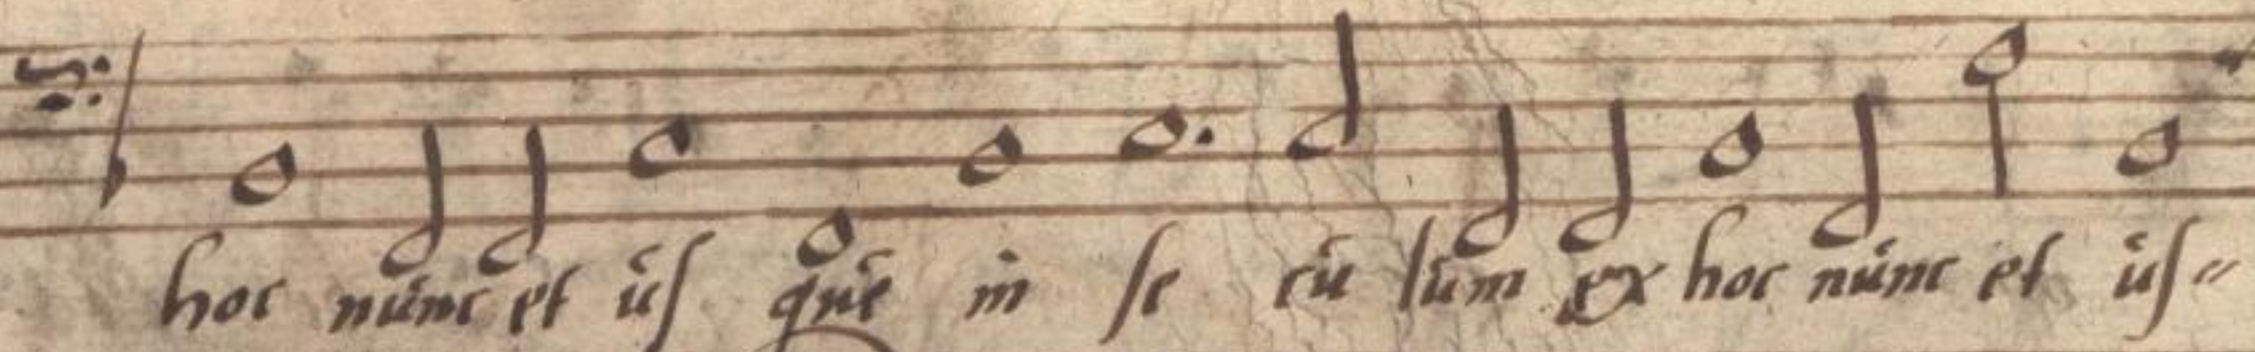 hoc nunc et us que in se cu lum ex hoc nunc et us=